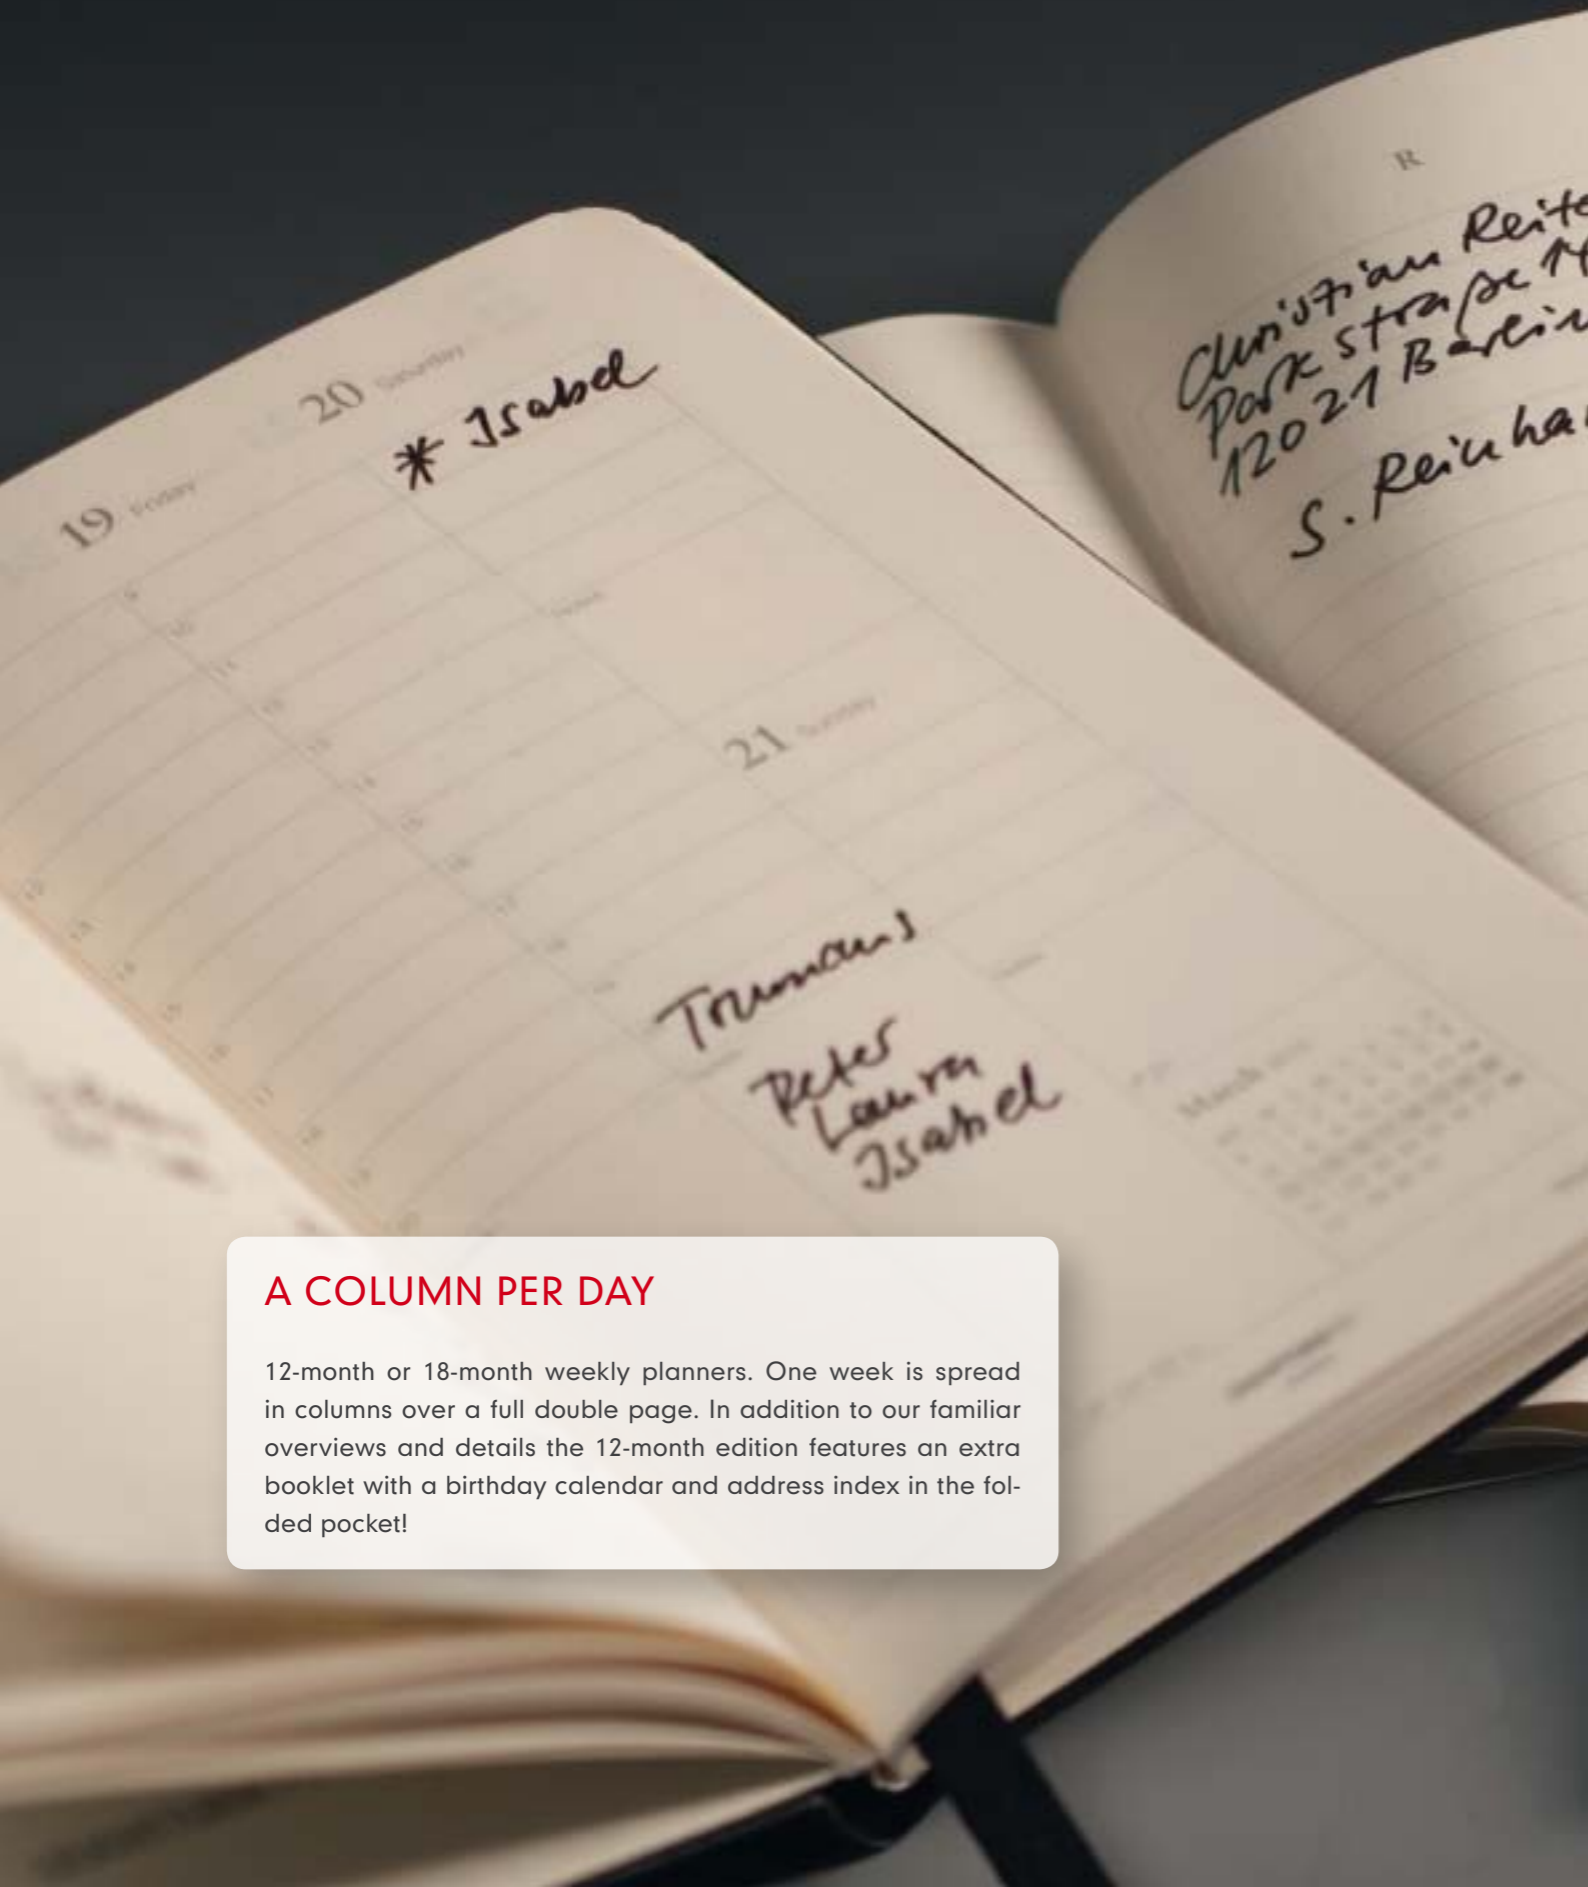 R
Christian Reite
Parkstraße 14
12021 Berlin
S. Reinha
20 Saturday
* Isabel
19 Friday
9
10
11
12
13
14
15
16
17
18
19
Notes
21 Sunday
Peter
Laura
Isabel
March
A COLUMN PER DAY
12-month or 18-month weekly planners. One week is spread
in columns over a full double page. In addition to our familiar
overviews and details the 12-month edition features an extra
booklet with a birthday calendar and address index in the fol-
ded pocket!